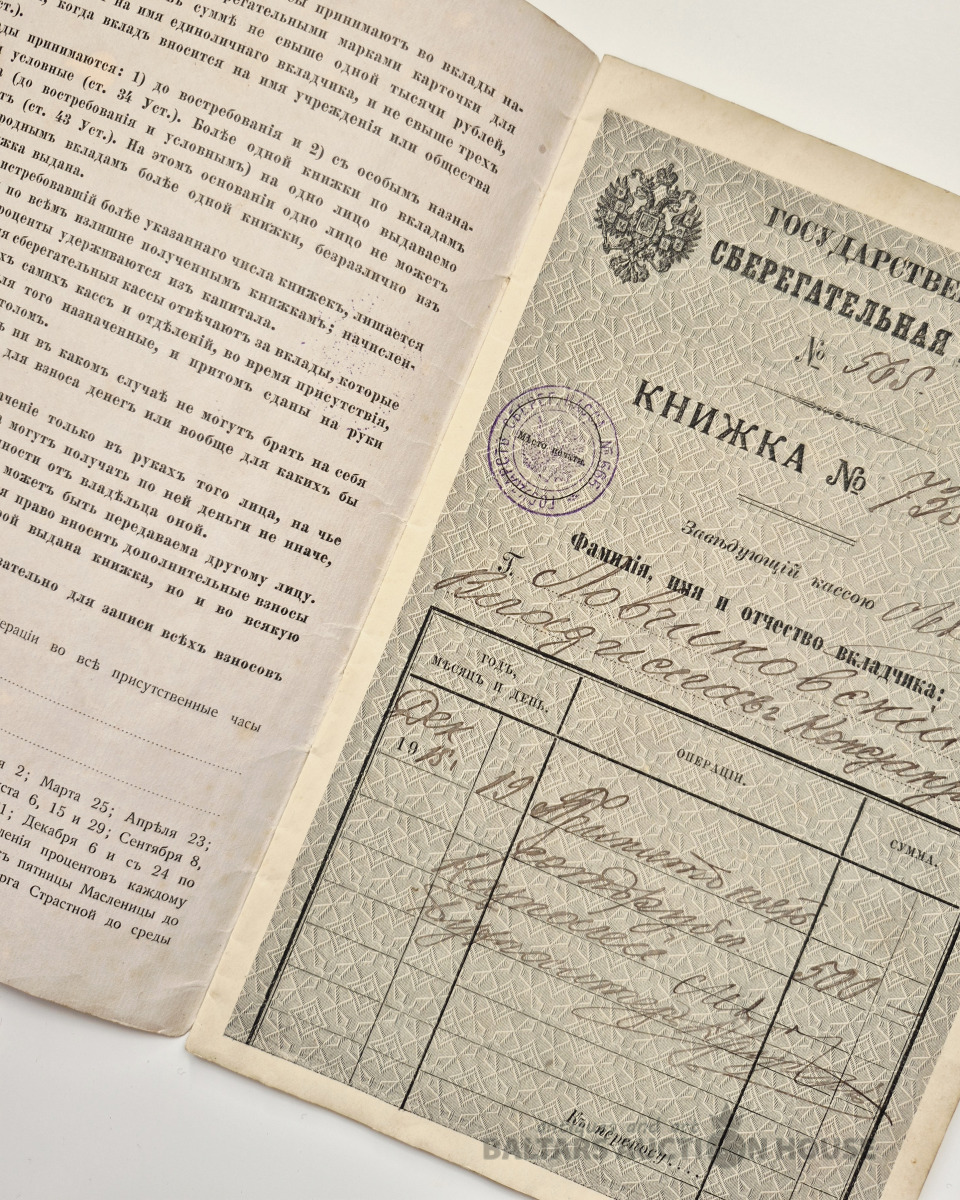 принимаютъ во вклады
сберегательными марками карточки для
суммѣ не свыше одной тысячи рублей,
на имя единоличнаго вкладчика, и не свыше трехъ
когда вкладъ вносится на имя учрежденія или общества
ст.).
принимаются: 1) до востребованія и 2) съ особымъ назна-
условные (ст. 34 Уст.). Болѣе одной книжки по вкладамъ
(до востребованія и условнымъ) на одно лицо выдаваемо
(ст. 43 Уст.). На этомъ основаніи одно лицо не можетъ
роднымъ вкладамъ болѣе одной книжки, безразлично изъ
жка выдана.
истребовавшій болѣе указаннаго числа книжекъ, лишается
по всѣмъ излишне полученнымъ книжкамъ; начислен-
роценты удерживаются изъ капитала.
сберегательныя кассы отвѣчаютъ за вклады, которые
хъ самихъ кассъ и отдѣленій, во время присутствія,
для того назначенные, и притомъ сданы на руки
толомъ.
ни въ какомъ случаѣ не могутъ брать на себя
для взноса денегъ или вообще для какихъ бы
наченіе только въ рукахъ того лица, на чье
могутъ получать по ней деньги не иначе,
ности отъ владѣльца оной.
можетъ быть передаваема другому лицу.
право вносить дополнительные взносы
рой выдана книжка, но и во всякую
зательно для записи всѣхъ взносовъ
ераціи во всѣ присутственные часы
я 2; Марта 25; Апрѣля 23;
ста 6, 15 и 29; Сентября 8,
1; Декабря 6 и съ 24 по
ленія процентовъ каждому
пятницы Масленицы до
рга Страстной до среды
ГОСУДАРСТВЕН
СБЕРЕГАТЕЛЬНАЯ
№ 565.
КНИЖКА № 73
Мѣсто печати.
Завѣдующій кассою
Фамилія, имя и отчество вкладчика:
Г.
ГОДЪ,
МѢСЯЦЪ И ДЕНЬ.
ОПЕРАЦІИ.
СУММА.
Дек
1915 г.
19
Принято
500
Къ переносу....
BALTARS AUCTION HOUSE